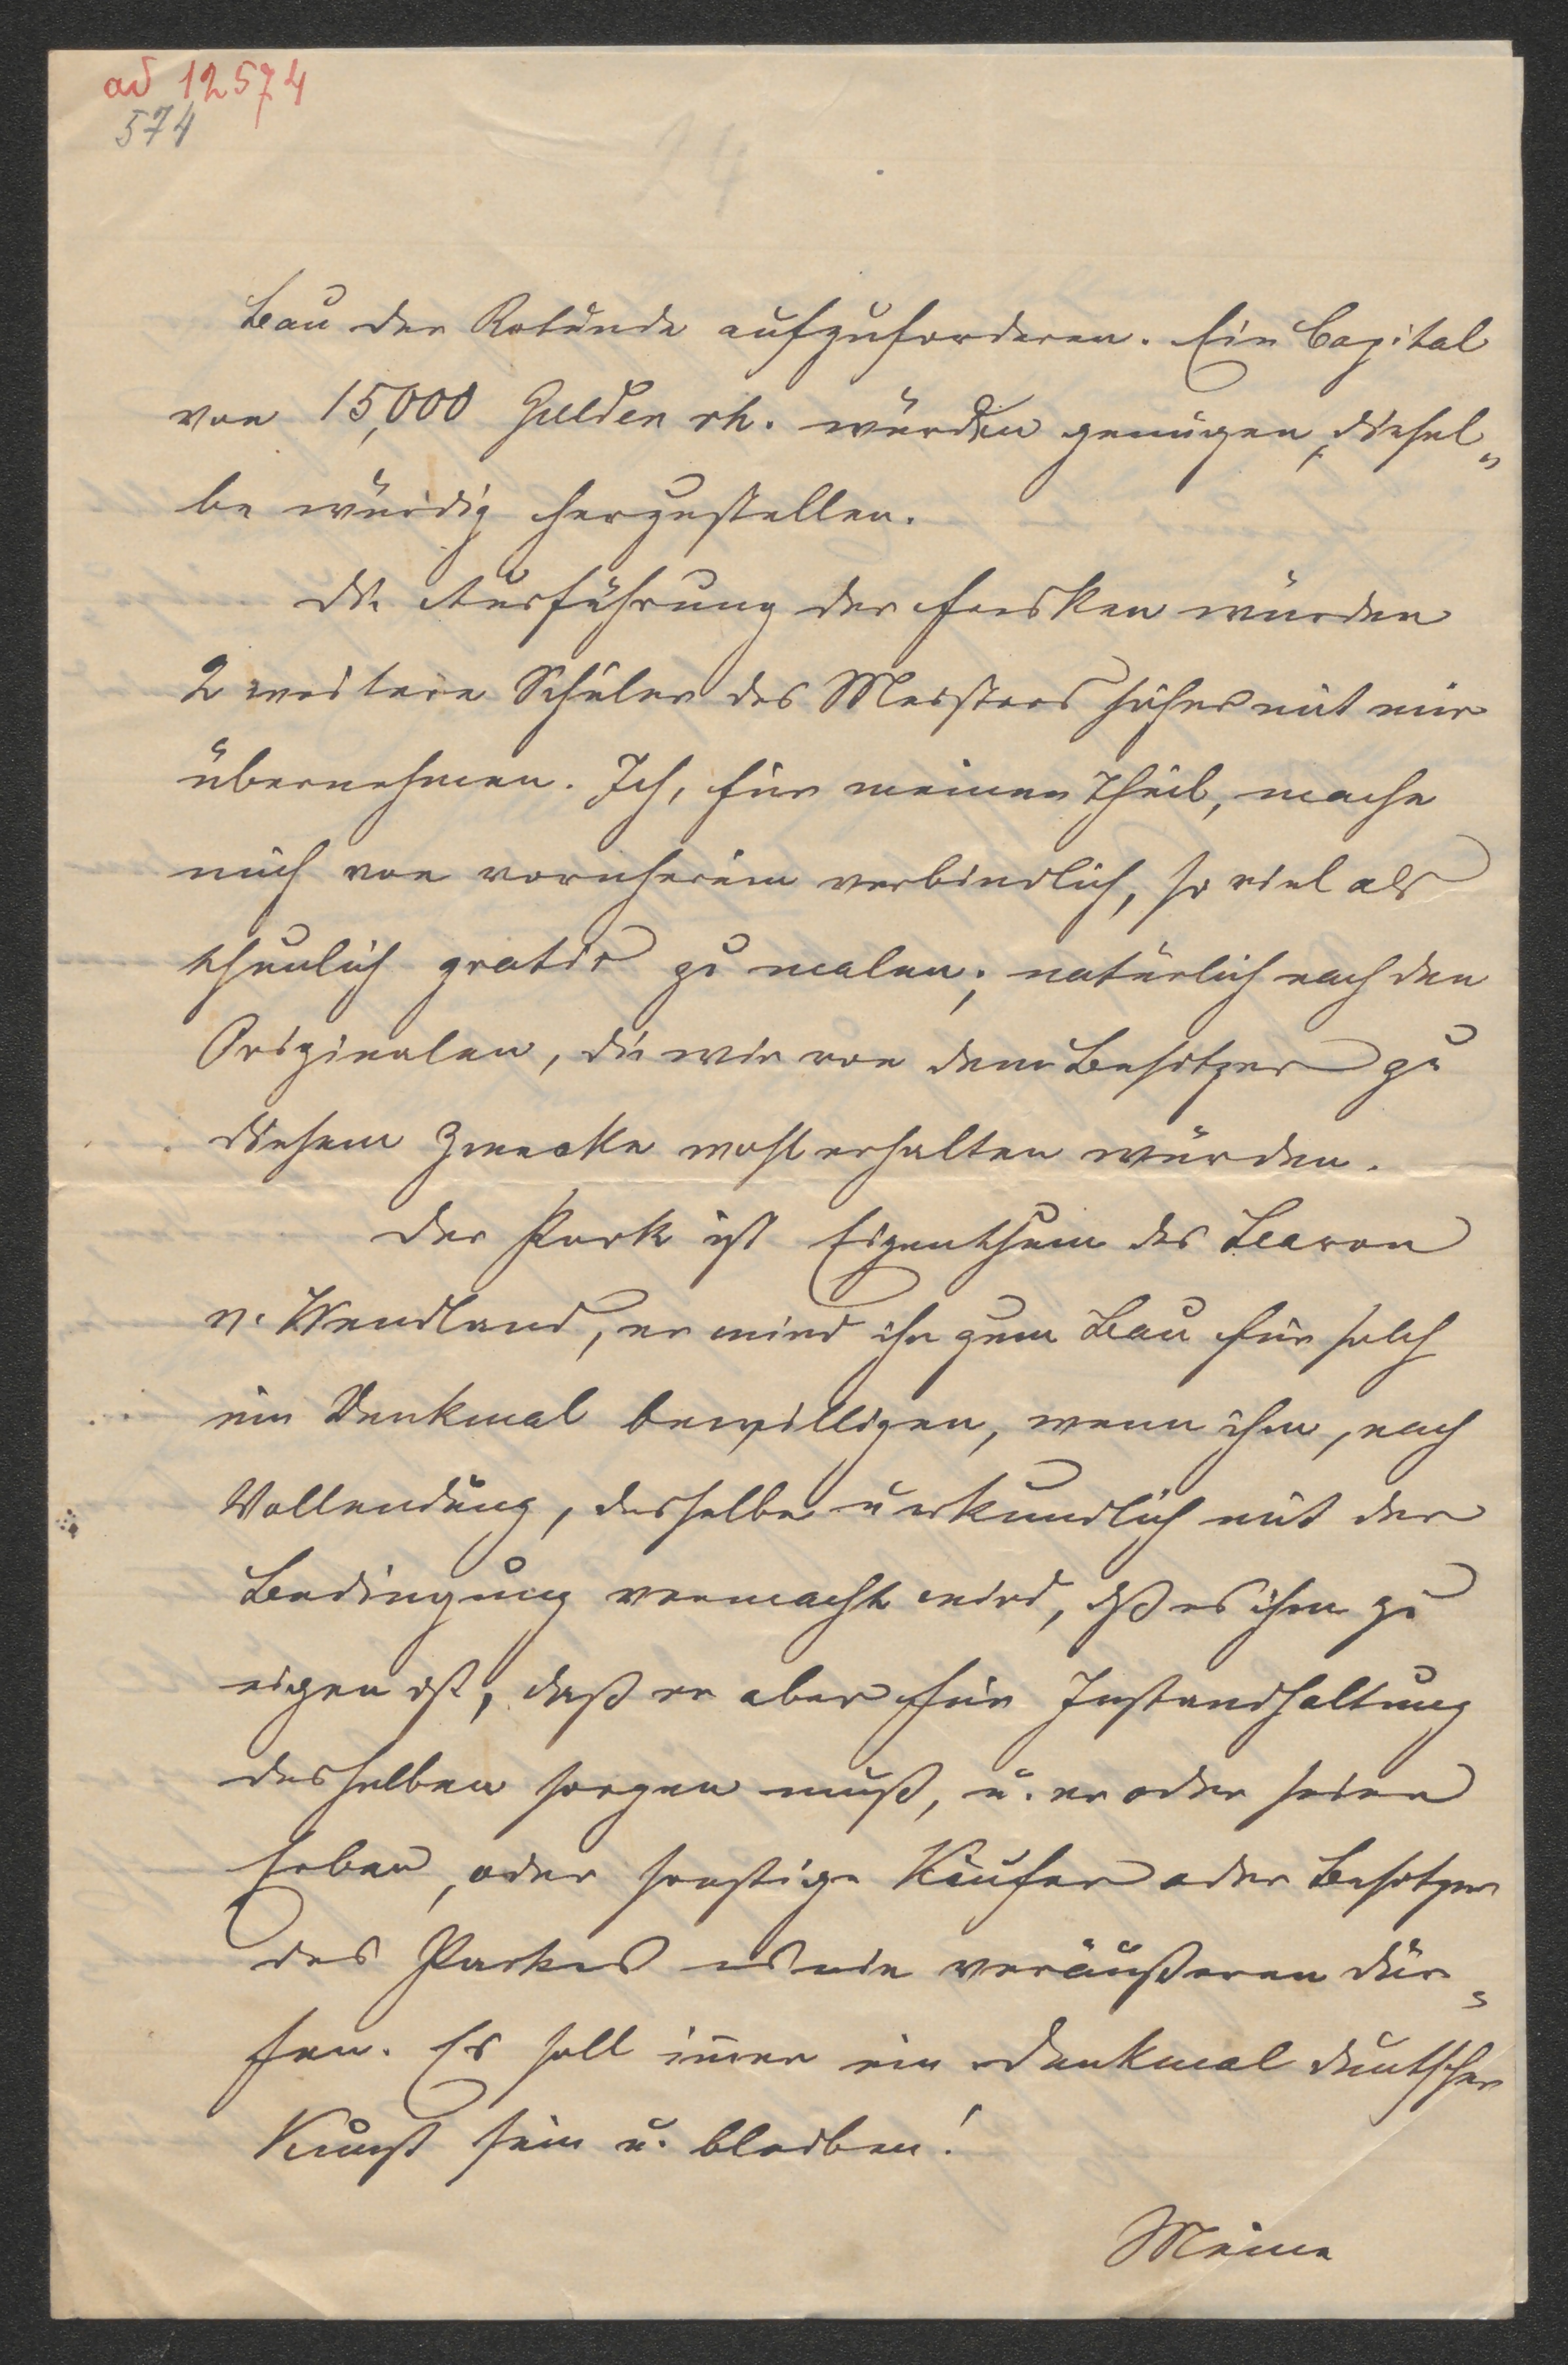 ad 12574
574
24
Bau der Rotunde aufzuforderen. Ein Capital
von 15,000 Gulden rh. würden genügen, diesel„
be würdig herzustellen.
Die Ausführung der Fresken würden
2 weitere Schüler des Meisters sicher mit mir
übernehmen. Ich, für meinen Theil, mache
mich von vornherein verbindlich, so viel als
thunlich gratis zu malen; natürlich nach den
Originalen, die wir von dem Besitzer zu
diesem Zwecke wohl erhalten würden.
Der Park ist Eigenthum des Baron
v. Wendland, er wird ihn zum Bau für solch
ein Denkmal bewilligen, wenn ihm, nach
Vollendung, dasselbe urkundlich mit der
Bedingung vermacht wird, dß es ihm zu
eigen ist, daß er aber für Instandhaltung
desselben sorgen muß, u. er oder seine
Erben, oder sonstige Käufer oder Besitzer
des Parkes es nie veräußeren dür„
fen. Es soll im̅er ein Denkmal deutscher
Kunst sein u. bleiben!
Meine